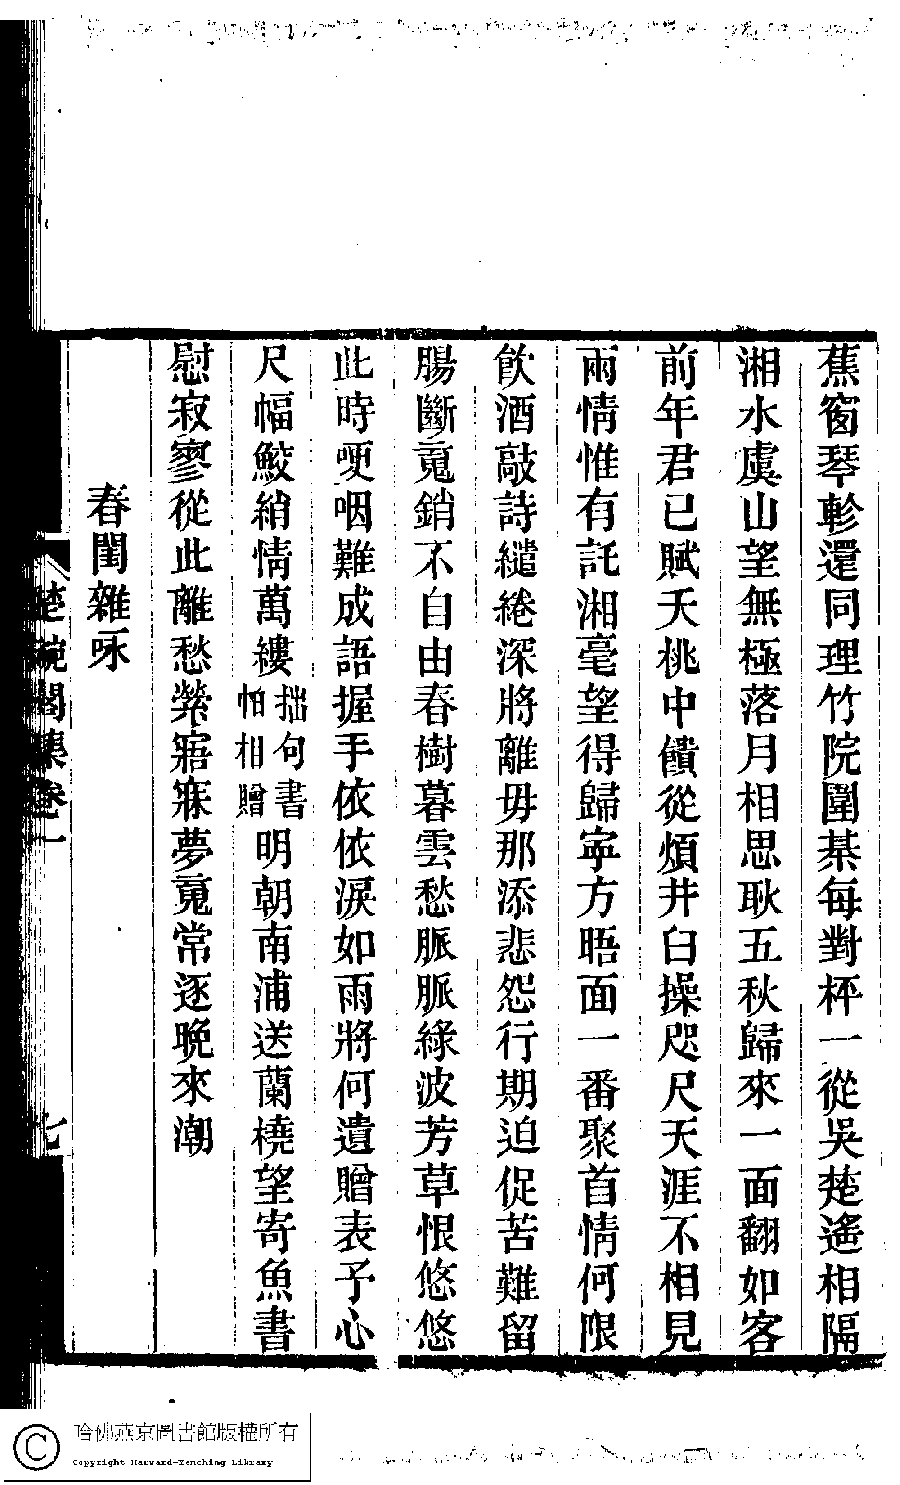 蕉窗琴軫還同理竹院圍棊每對枰一從吳楚遙相隔
湘水虞山望無極落月相思耿五秋歸來一面翻如客
前年君已賦夭桃中饋從煩井臼操咫尺天涯不相見
兩情惟有託湘毫望得歸寧方晤面一番聚首情何限
飮酒敲詩繾綣深將離毋那添悲怨行期迫促苦難留
腸斷䰟銷不自由春樹暮雲愁脈脈綠波芳草恨悠悠
此時哽咽難成語握手依依淚如雨將何遺贈表予心
尺幅鮫綃情萬縷拙句書帕相贈明朝南浦送蘭橈望寄魚書
慰寂寥從此離愁縈寤寐夢䰟常逐晚來潮
春閨雜咏
楚畹閣集卷一
七
哈佛燕京圖書館版權所有
Copyright Harvard-Yenching Library